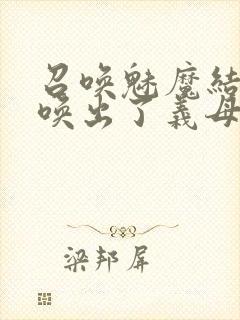 召唤魅魔结
唤出了义母
梁邦屏